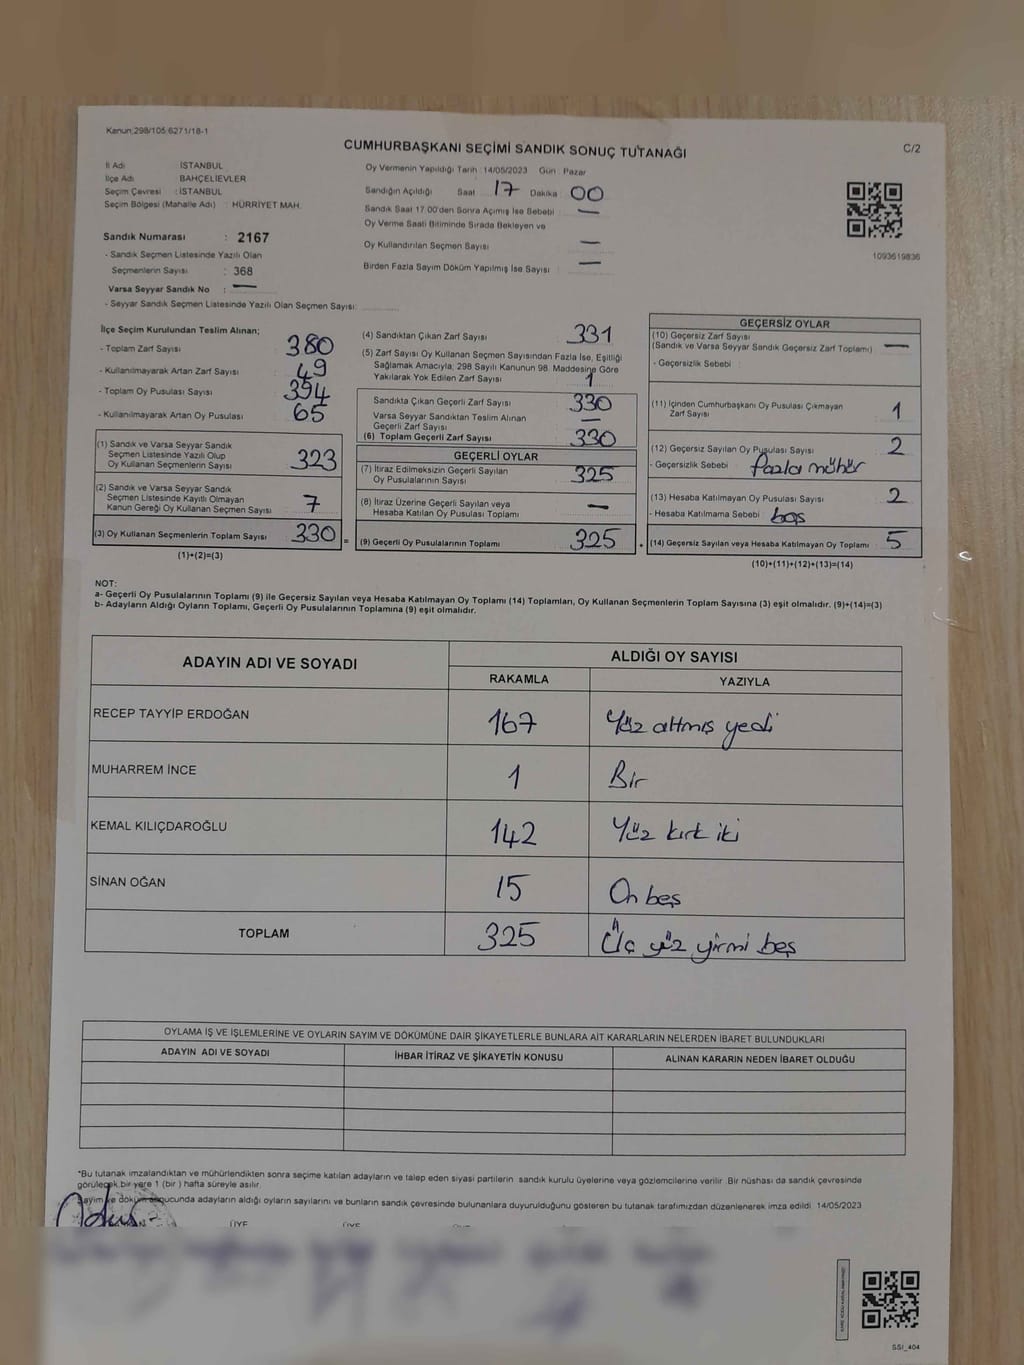 Kanun:298/105 6271/18-1
CUMHURBAŞKANI SEÇİMİ SANDIK SONUÇ TUTANAĞI
C/2
İl Adı : İSTANBUL
İlçe Adı : BAHÇELİEVLER
Seçim Çevresi : İSTANBUL
Seçim Bölgesi (Mahalle Adı) : HÜRRİYET MAH.
Sandık Numarası : 2167
- Sandık Seçmen Listesinde Yazılı Olan
Seçmenlerin Sayısı : 368
Varsa Seyyar Sandık No : —
- Seyyar Sandık Seçmen Listesinde Yazılı Olan Seçmen Sayısı:
Oy Vermenin Yapıldığı Tarih :14/05/2023 Gün Pazar
Sandığın Açıldığı Saat 17 Dakika 00
Sandık Saat 17.00'den Sonra Açımış İse Sebebi : —
Oy Verme Saati Bitiminde Sırada Bekleyen ve
Oy Kullandırılan Seçmen Sayısı : —
Birden Fazla Sayım Döküm Yapılmış İse Sayısı : —
1093619836
İlçe Seçim Kurulundan Teslim Alınan;
- Toplam Zarf Sayısı : 380
- Kullanılmayarak Artan Zarf Sayısı : 49
- Toplam Oy Pusulası Sayısı : 394
- Kullanılmayarak Artan Oy Pusulası : 65
(1) Sandık ve Varsa Seyyar Sandık
Seçmen Listesinde Yazılı Olup
Oy Kullanan Seçmenlerin Sayısı : 323
(2) Sandık ve Varsa Seyyar Sandık
Seçmen Listesinde Kayıtlı Olmayan
Kanun Gereği Oy Kullanan Seçmen Sayısı : 7
(3) Oy Kullanan Seçmenlerin Toplam Sayısı : 330
(1)+(2)=(3)
(4) Sandıktan Çıkan Zarf Sayısı : 331
(5) Zarf Sayısı Oy Kullanan Seçmen Sayısından Fazla İse, Eşitliği
Sağlamak Amacıyla; 298 Sayılı Kanunun 98. Maddesine Göre
Yakılarak Yok Edilen Zarf Sayısı : 1
Sandıkta Çıkan Geçerli Zarf Sayısı : 330
Varsa Seyyar Sandıktan Teslim Alınan
Geçerli Zarf Sayısı : —
(6) Toplam Geçerli Zarf Sayısı : 330
GEÇERLİ OYLAR
(7) İtiraz Edilmeksizin Geçerli Sayılan
Oy Pusulalarının Sayısı : 325
(8) İtiraz Üzerine Geçerli Sayılan veya
Hesaba Katılan Oy Pusulası Toplamı : —
= (9) Geçerli Oy Pusulalarının Toplamı : 325
GEÇERSİZ OYLAR
(10) Geçersiz Zarf Sayısı
(Sandık ve Varsa Seyyar Sandık Geçersiz Zarf Toplamı) : —
- Geçersizlik Sebebi :
(11) İçinden Cumhurbaşkanı Oy Pusulası Çıkmayan
Zarf Sayısı : 1
(12) Geçersiz Sayılan Oy Pusulası Sayısı : 2
- Geçersizlik Sebebi : fazla mühür
(13) Hesaba Katılmayan Oy Pusulası Sayısı : 2
- Hesaba Katılmama Sebebi : boş
+ (14) Geçersiz Sayılan veya Hesaba Katılmayan Oy Toplamı : 5
(10)+(11)+(12)+(13)=(14)
NOT:
a- Geçerli Oy Pusulalarının Toplamı (9) ile Geçersiz Sayılan veya Hesaba Katılmayan Oy Toplamı (14) Toplamları, Oy Kullanan Seçmenlerin Toplam Sayısına (3) eşit olmalıdır. (9)+(14)=(3)
b- Adayların Aldığı Oyların Toplamı, Geçerli Oy Pusulalarının Toplamına (9) eşit olmalıdır.
ADAYIN ADI VE SOYADI
ALDIĞI OY SAYISI
RAKAMLA YAZIYLA
RECEP TAYYİP ERDOĞAN 167 Yüz altmış yedi
MUHARREM İNCE 1 Bir
KEMAL KILIÇDAROĞLU 142 Yüz kırk iki
SİNAN OĞAN 15 On beş
TOPLAM 325 Üç yüz yirmi beş
OYLAMA İŞ VE İŞLEMLERİNE VE OYLARIN SAYIM VE DÖKÜMÜNE DAİR ŞİKAYETLERLE BUNLARA AİT KARARLARIN NELERDEN İBARET BULUNDUKLARI
ADAYIN ADI VE SOYADI İHBAR İTİRAZ VE ŞİKAYETİN KONUSU ALINAN KARARIN NEDEN İBARET OLDUĞU
*Bu tutanak imzalandıktan ve mühürlendikten sonra seçime katılan adayların ve talep eden siyasi partilerin sandık kurulu üyelerine veya gözlemcilerine verilir. Bir nüshası da sandık çevresinde
görülecek bir yere 1 (bir) hafta süreyle asılır.
Sayım ve döküm sonucunda adayların aldığı oyların sayılarını ve bunların sandık çevresinde bulunanlara duyurulduğunu gösteren bu tutanak tarafımızdan düzenlenerek imza edildi 14/05/2023
ÜYE ÜYE
SSI_404